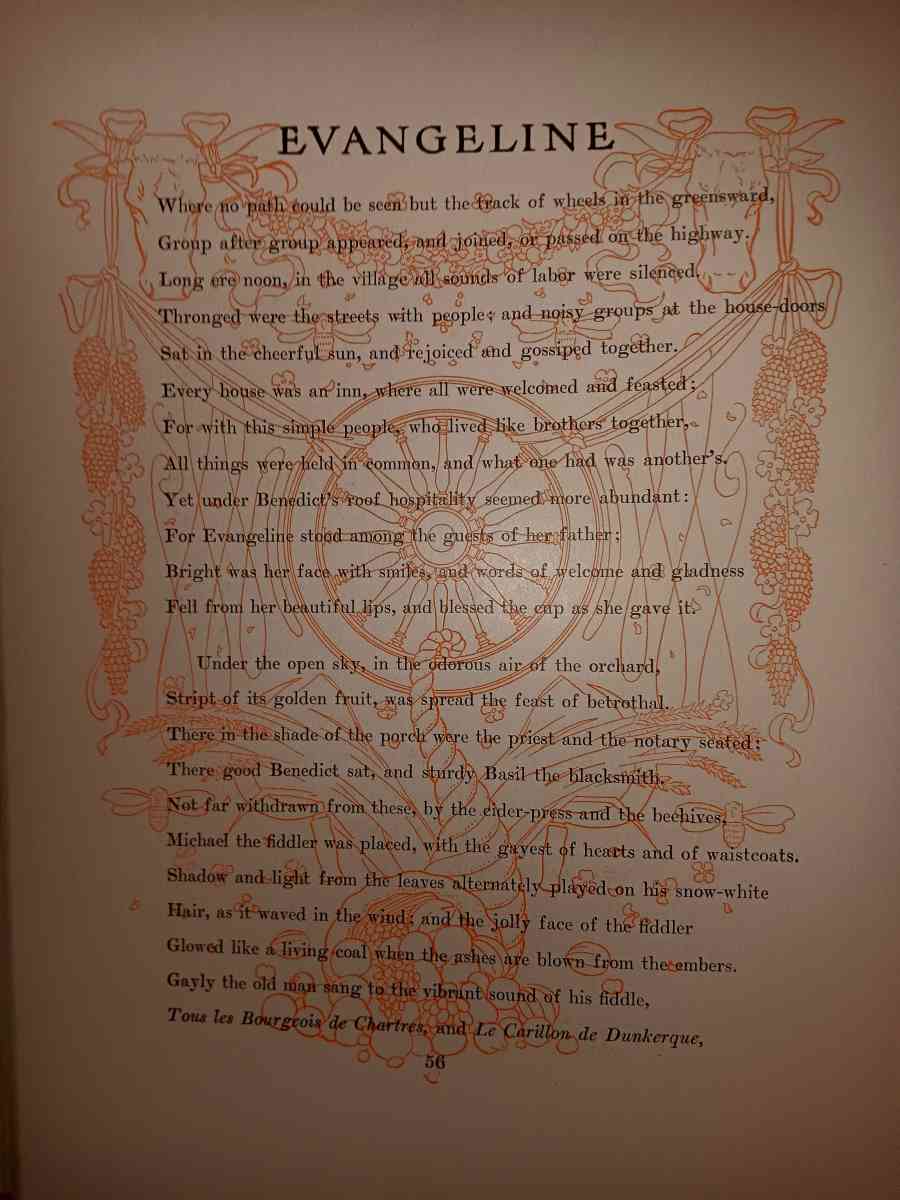 EVANGELINE
Where no path could be seen but the track of wheels in the greensward,
Group after group appeared, and joined, or passed on the highway.
Long ere noon, in the village all sounds of labor were silenced.
Thronged were the streets with people; and noisy groups at the house-doors
Sat in the cheerful sun, and rejoiced and gossiped together.
Every house was an inn, where all were welcomed and feasted;
For with this simple people, who lived like brothers together,
All things were held in common, and what one had was another's.
Yet under Benedict's roof hospitality seemed more abundant:
For Evangeline stood among the guests of her father;
Bright was her face with smiles, and words of welcome and gladness
Fell from her beautiful lips, and blessed the cup as she gave it.
Under the open sky, in the odorous air of the orchard,
Stript of its golden fruit, was spread the feast of betrothal.
There in the shade of the porch were the priest and the notary seated;
There good Benedict sat, and sturdy Basil the blacksmith.
Not far withdrawn from these, by the cider-press and the beehives,
Michael the fiddler was placed, with the gayest of hearts and of waistcoats.
Shadow and light from the leaves alternately played on his snow-white
Hair, as it waved in the wind; and the jolly face of the fiddler
Glowed like a living coal when the ashes are blown from the embers.
Gayly the old man sang to the vibrant sound of his fiddle,
Tous les Bourgeois de Chartres, and Le Carillon de Dunkerque,
56